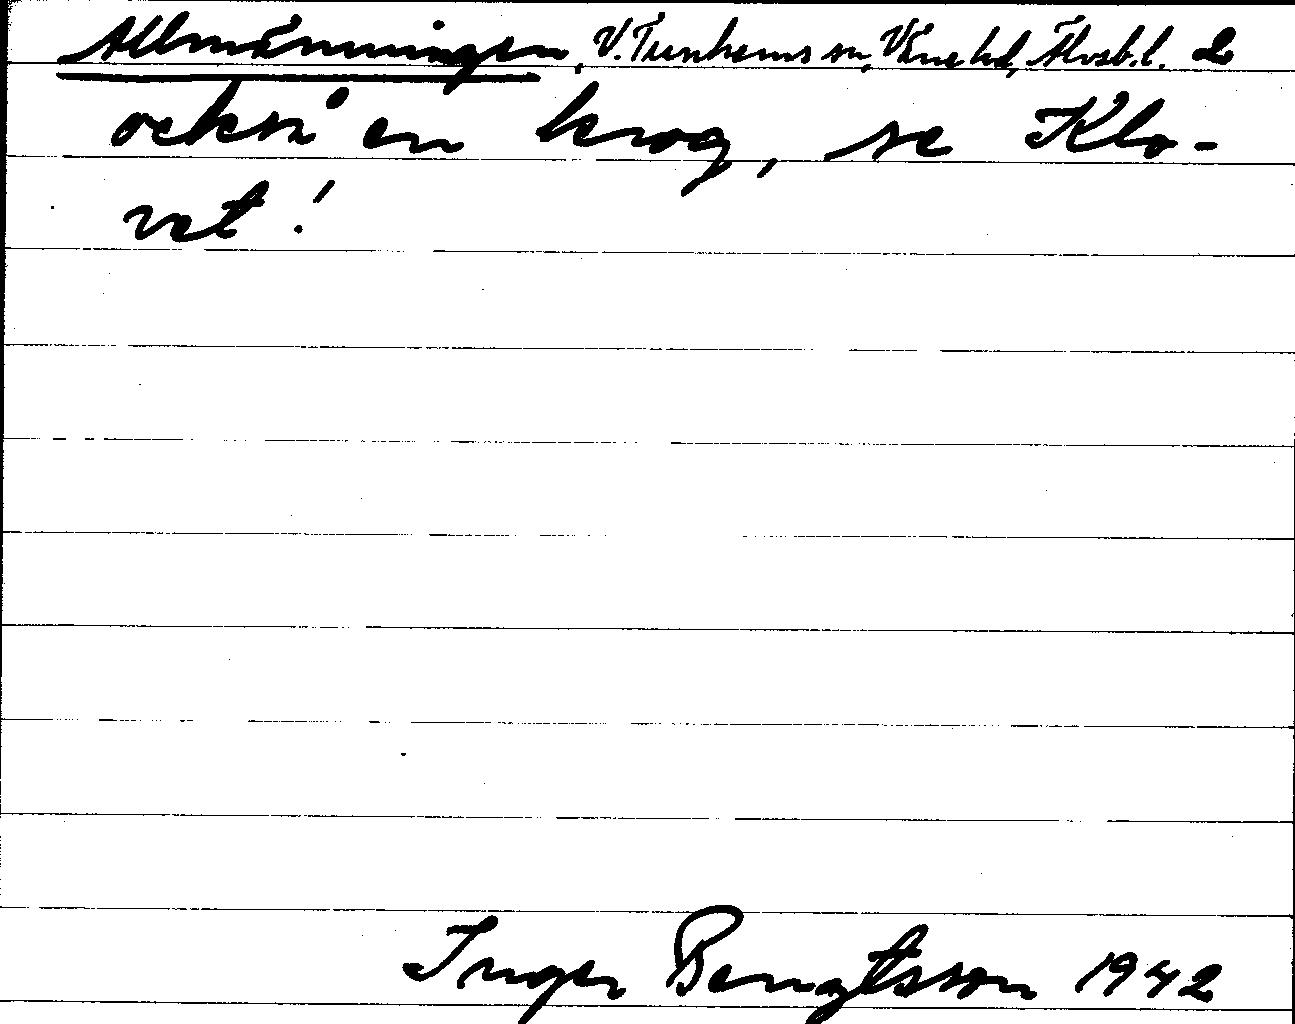 Allmänningen, V. Tunhems sn, Väne hd, Älvsb. l. 2
också en krog, se Klo-
vet!
Inger Bengtsson 1942